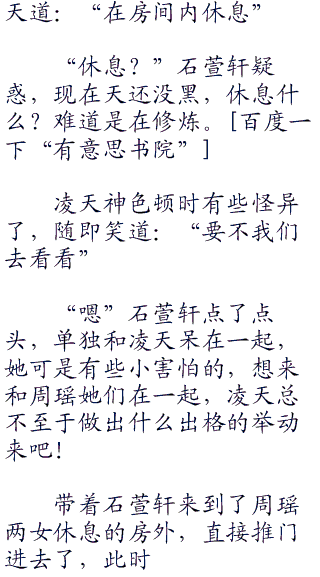 天道：“在房间内休息”
“休息？”石萱轩疑
惑，现在天还没黑，休息什
么？难道是在修炼。[百度一
下“有意思书院”]
凌天神色顿时有些怪异
了，随即笑道：“要不我们
去看看”
“嗯”石萱轩点了点
头，单独和凌天呆在一起，
她可是有些小害怕的，想来
和周瑶她们在一起，凌天总
不至于做出什么出格的举动
来吧！
带着石萱轩来到了周瑶
两女休息的房外，直接推门
进去了，此时